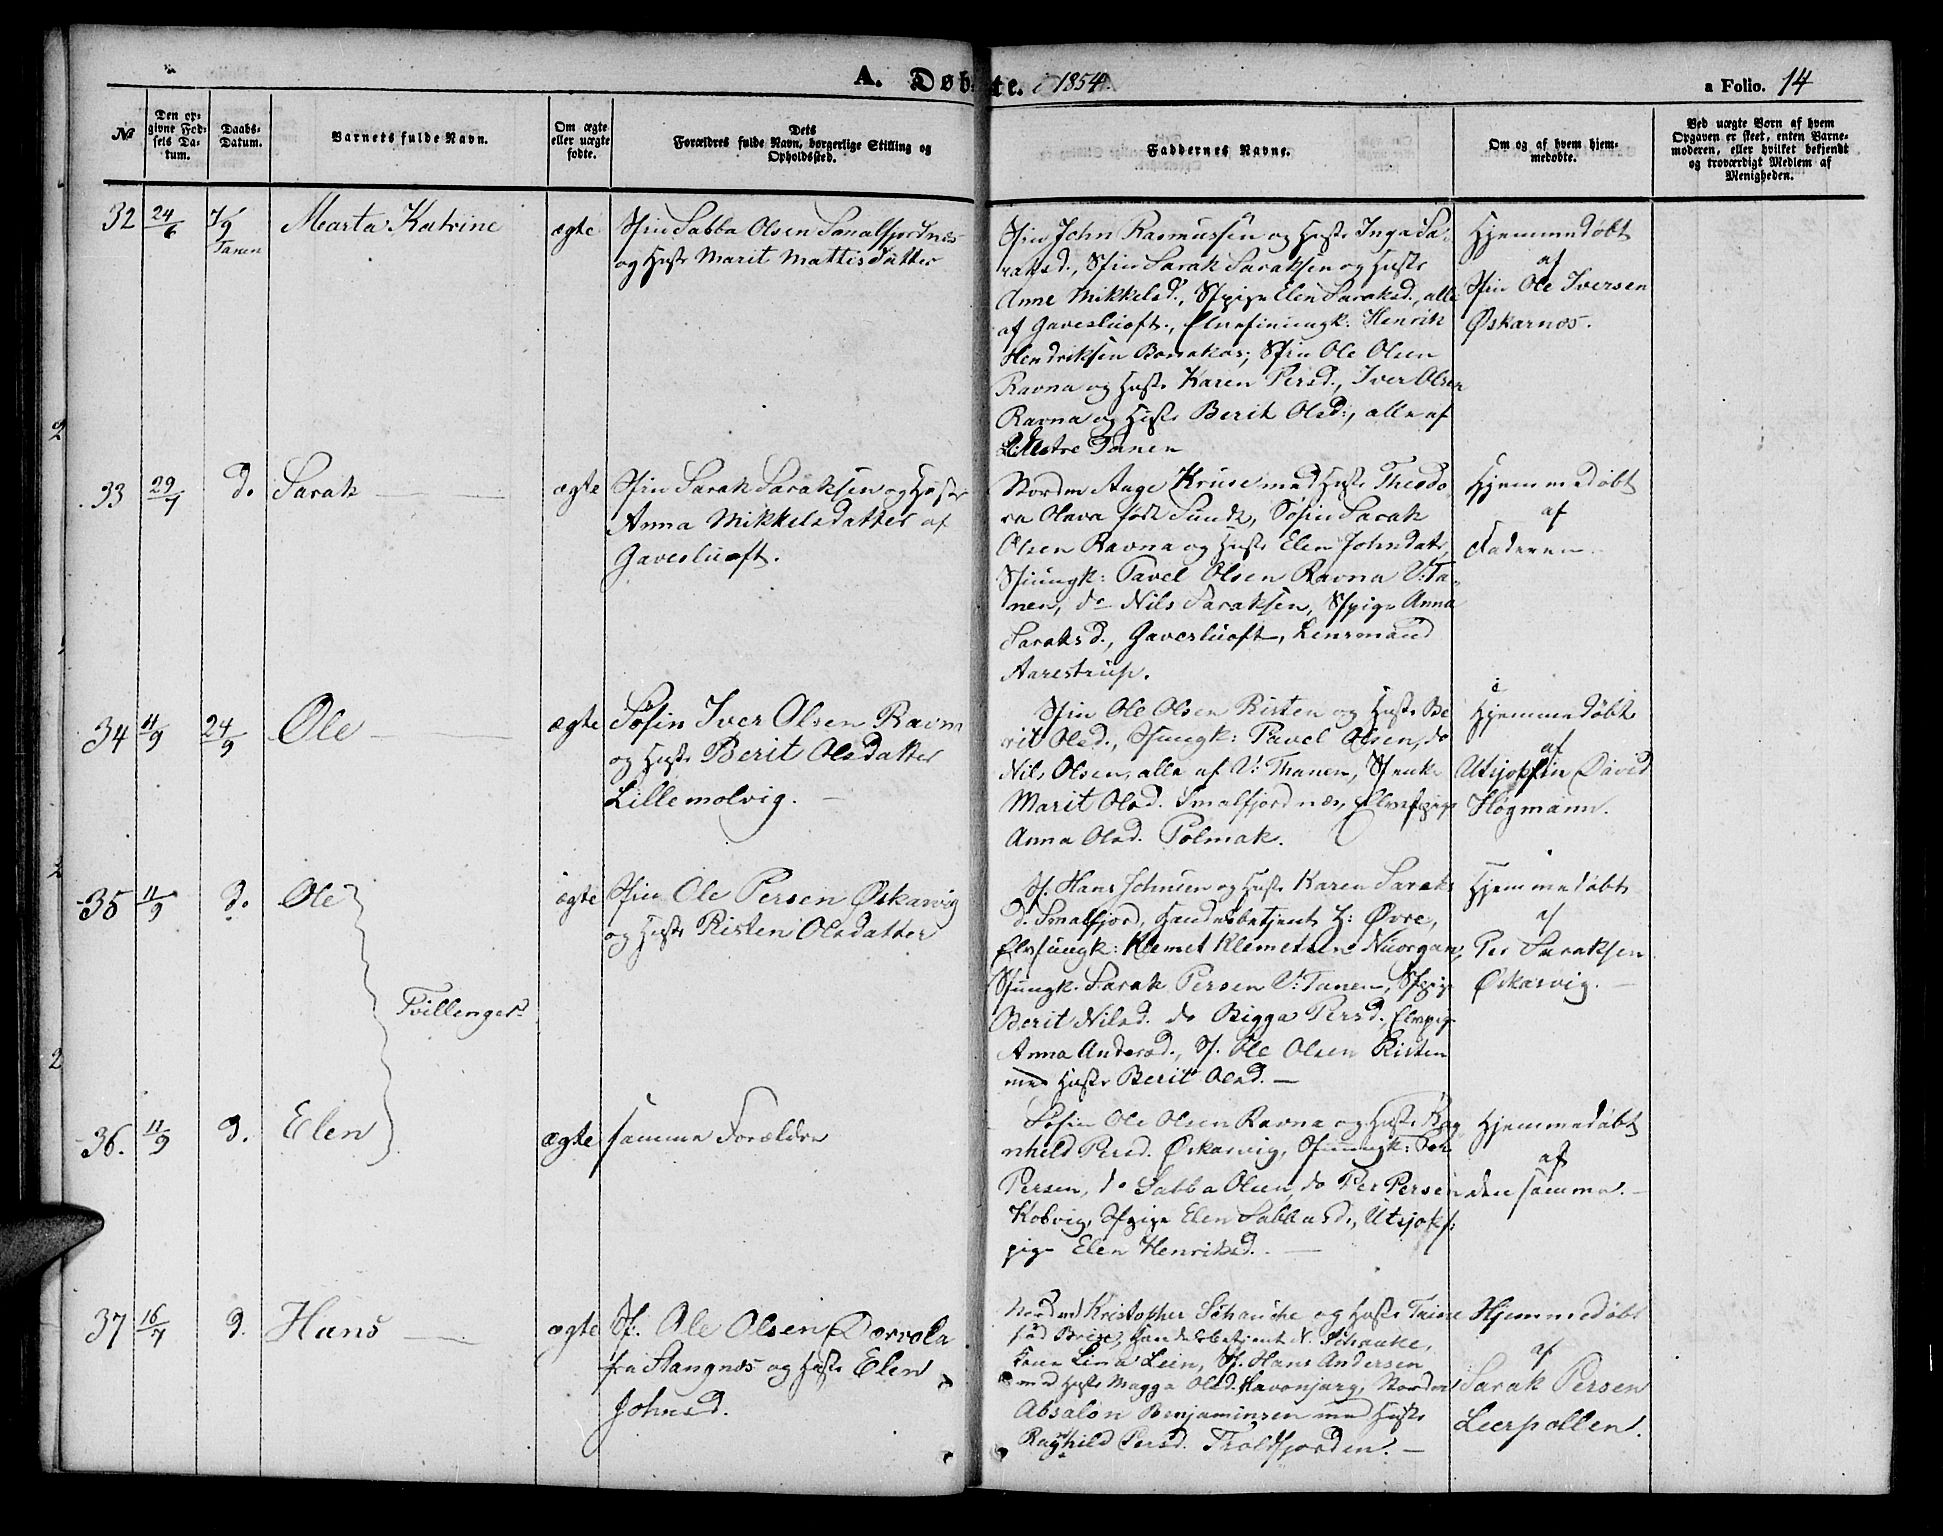 A. Døbte. i 1854.
a Folio. 14
No
Den opgivne Fødsels Datum.
Daabs-Datum.
Barnets fulde Navn.
Om ægte eller uægte fødte.
Dets Forældres fulde Navn, borgerlige Stilling og Opholdssted.
Faddernes Navne.
Om og af hvem hjemmedøbte.
Ved uægte Børn af hvem Opgaven er skeet, enten Barnemoderen, eller hvilket bekjendt og troværdigt Medlem af Menigheden.
32 24/6 7/9 Tanen Marta Katrine ægte
Sfin Sabba Olsen Smalfjordnæs
og Hustr Marit Mattisdatter
Sfin John Rasmussen og Hustr Inga Sa-
raksd., Sfin Sarak Saraksen og Hustr
Anne Mikkelsd., Sfpige Elen Saraksd., alle
af Gavesluoft., Elvefinungk: Henrik
Hendriksen ; Sfin Ole Olsen
Ravna og Hustr Karen Persd., Iver Olsen
Ravna og Hustr Berit Olsd., alle af
Vestre Tanen
Hjemmedøbt
af
Sfin Ole Iversen
Øskarnæs.
33 29/7 do Sarak ægte
Sfin Sarak Saraksen og Hustr
Anna Mikkelsdatter af
Gavesluoft.
Nordm Aage Kruse med Hustr Theodo-
ra Olava født Sundt, Søfin Sarak
Olsen Ravna og Hustr Elen Johnsdat,
Sfiungk: Pavel Olsen Ravna V: Ta-
nen, do Nils Saraksen, Sfpige Anna
Saraksd., Gavesluoft, Lensmand
Aarestrup.
Hjemmedøbt
af
Faderen
34 11/9 24/9 Ole ægte
Søfin Iver Olsen Ravna
og Hustr Berit Olsdatter
Lillemolvig.
Sfin Ole Olsen Risten og Hustr Be
rit Olsd., Sfiungk: Pavel Olsen, do
Nils Olsen, alle af V: Thanen, Sfenke
Marit Olsd. Smalfjordnæs, Elvefpige
Anna Olsd. Polmak.
Hjemmedøbt
af
Utsjokfin David
Høgmann.
35 11/9 do Ole ægte
Sfin Ole Persen Øskarvig
og Hustr Risten Olsdatter
Tvillinger
Sf. Hans Johnsen og Hustr Karen Saraks
d. Smalfjord, Handelsbetjent H: Øvre,
Elvfiungk: Klemet Klemetsen Nuorgam,
Sfiungk. Sarak Persen V: Tanen, Sfpige
Berit Nilsd. do Bigga Persd., Elvpig
Anna Andersd., Sf. Ole Olsen Risten
med Hustr Berit Olsd.
Hjemmedøbt
af
Per Saraksen
Øskarvig.
36. 11/9 do Elen ægte
samme Forældre
Søfin Ole Olsen Ravna og Hustr Rag
nhild Persd. Øskarvig, Sfiungk: Per
Persen, do Sabba Olsen do Per Persen
Kobvig, Sfpige Elen Sabbasd., Utsjokf:
pige Elen Henriksd.
Hjemmedøbt
af
den samme.
37 16/7 do Hans ægte
Sf. Ole Olsen Dorvola
fra Stangnæs og Hustr Elen
Johnsd.
Nordmd Kristopher Schanche og Hustr Trine
fød Brix, Handelsbetjent N. Schanke,
Lina Lien, Sf. Hans Andersen
med Hustr Magga Olsd. Havonjarg, Nordmd
Absalon Benjaminsen med Hustr
Raghild Persd. Troldfjorden.
Hjemmedøbt
af
Sarak Persen
Leerpollen.